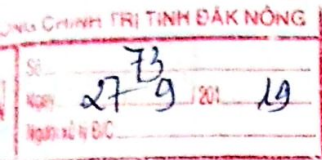 CHÍNH TRỊ TỈNH ĐẮK NÔNG
Số 73
Ngày 27 9 /201 19
Người xử lý Đ/C